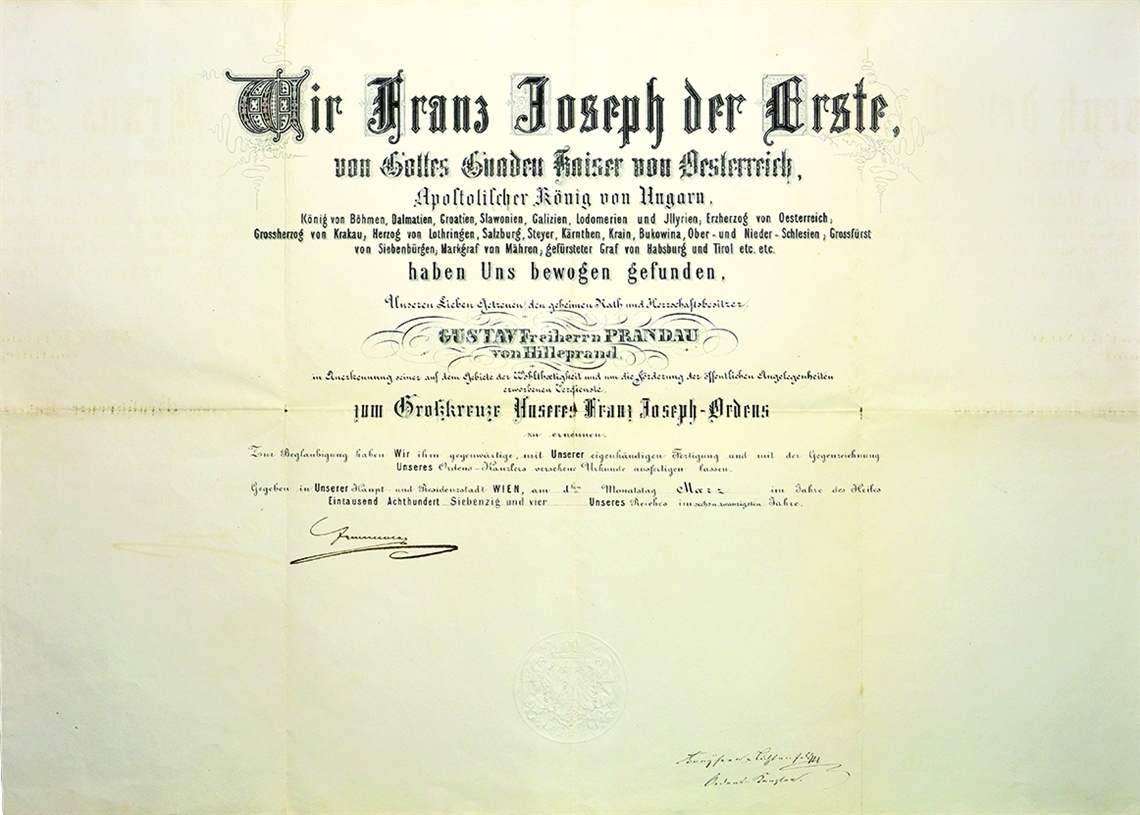 Wir Franz Joseph der Erste,
von Gottes Gnaden Kaiser von Oesterreich,
Apostolischer König von Ungarn,
König von Böhmen, Dalmatien, Croatien, Slawonien, Galizien, Lodomerien und Jllyrien; Erzherzog von Oesterreich;
Grossherzog von Krakau, Herzog von Lothringen, Salzburg, Steyer, Kärnthen, Krain, Bukowina, Ober- und Nieder-Schlesien; Grossfürst
von Siebenbürgen; Markgraf von Mähren; gefürsteter Graf von Habsburg und Tirol etc. etc.
haben Uns bewogen gefunden,
Unseren Lieben Getreuen, den geheimen Rath und Herrschaftsbesitzer,
GUSTAV Freiherrn PRANDAU
von Hilleprand,
in Anerkennung seiner auf dem Gebiete der Wohlthœtigkeit und um die Förderung der öffentlichen Angelegenheiten
erworbenen Verdienste,
zum Großkreuze Unseres Franz Joseph-Ordens
zu ernennen.
Zur Beglaubigung haben Wir ihm gegenwärtige, mit Unserer eigenhändigen Fertigung und mit der Gegenzeichnung
Unseres Ordens-Kanzlers versehene Urkunde ausfertigen lassen.
Gegeben in Unserer Haupt und Residenzstadt WIEN, am 1ten Monatstag März im Jahre des Heiles
Eintausend Achthundert Siebenzig und vier Unseres Reiches im sechsundzwanzigsten Jahre.
Ordens-Kanzler